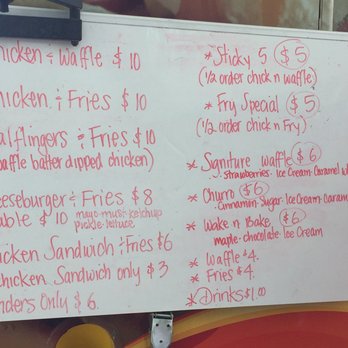 hicken & Waffle $ 10
hicken & Fries $ 10
alflingers & Fries $ 10
affle batter dipped chicken)
eeseburger & Fries $ 8
uble $ 10 mayo-must-ketchup
pickle-lettuce
icken Sandwich & Fries $6
Chicken Sandwich only $ 3
nders Only $ 6.
* Sticky 5 $ 5
(1/2 order chick n waffle)
* Fry Special $ 5
(1/2 order chick n Fry)
* Signiture waffle $ 6
strawberries- Ice Cream- Caramel w
* Churro $ 6
Cinnamon Sugar- Ice Cream- caram
* Wake n Bake $ 6
maple- chocolate Ice Cream
* Waffle $4.
* Fries $4.
* Drinks $1.00